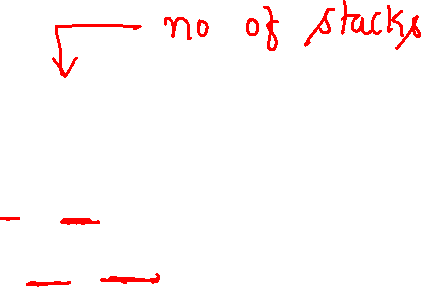 no of stacks